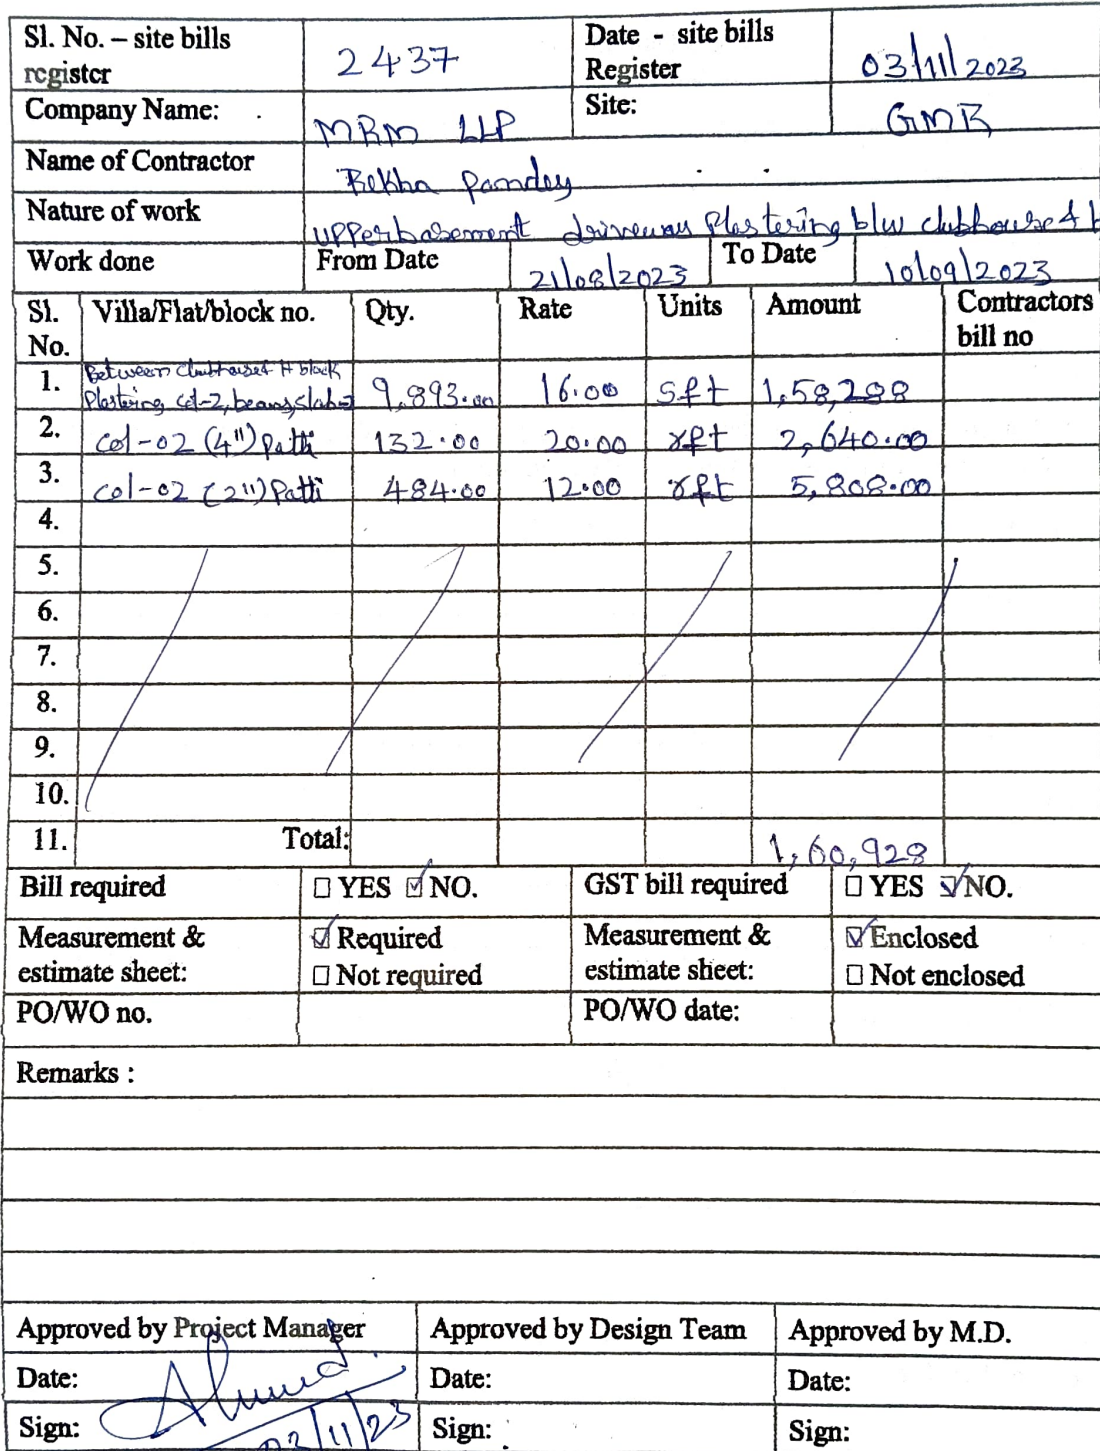 Sl. No. – site bills register 2437 Date - site bills Register 03/11/2023
Company Name: MRM LLP Site: GMR
Name of Contractor Rekha Pandey
Nature of work upperbasement driveway Plastering b/w clubhouse &
Work done From Date 21/08/2023 To Date 10/09/2023
Sl. No. Villa/Flat/block no. Qty. Rate Units Amount Contractors bill no
1. Between clubhouse & H block Plastering col-2, beams, slab 9,893.00 16.00 sft 1,58,288
2. col-02 (4") Patti 132.00 20.00 rft 2,640.00
3. col-02 (2") Patti 484.00 12.00 rft 5,808.00
4.
5.
6.
7.
8.
9.
10.
11. Total: 1,60,928
Bill required ☐ YES ☑ NO. GST bill required ☐ YES ☑ NO.
Measurement & estimate sheet: ☑ Required ☐ Not required Measurement & estimate sheet: ☑ Enclosed ☐ Not enclosed
PO/WO no. PO/WO date:
Remarks :
Approved by Project Manager Approved by Design Team Approved by M.D.
Date: Date: Date:
Sign: /11/23 Sign: Sign: